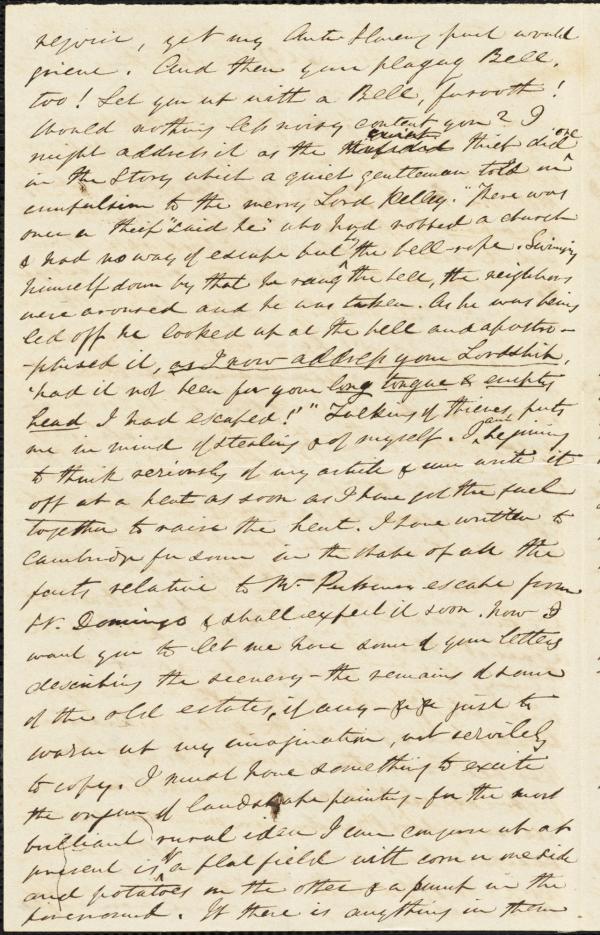 rejoice, yet my Anti-Slavery part would
grieve. And then your plaguy Bell,
too! Set you up with a Bell, forsooth!
Would nothing less noisy content you? I
might address it as the thief did
in the Story which a quiet gentleman told in
compulsion to the merry Lord Kelley. "There was
once a theif" said he "who had robbed a church
& had no way of escape but by the bell-rope. Swinging
himself down by that he rang the bell, the neighbors
were aroused and he was taken. As he was being
led off he looked up at the bell and apostro-
-phised it, as I now address your Lordship,
'had it not been for your long tongue & empty
head I had escaped!'" Talking of thieves, puts
me in mind of stealing & of myself. I am begining
to think seriously of my article & can write it
off at a heat as soon as I have got the fuel
together to raise the heat. I have written to
Cambridge for some in the shape of all the
facts relative to Mr. Perkins's escape from
St. Domingo & shall expect it soon. Now I
want you to let me have some of your letters
describing the scenery – the remains of some
of the old estates, if any – &c &c just to
warm up my imagination, not servilely
to copy. I must have something to excite
the organ of landskape painting – for the most
brilliant rural idea I can conjure up at
present is of a flat field with corn on one side
and potatoes on the other & a pump in the
foreground. If there is anything in them